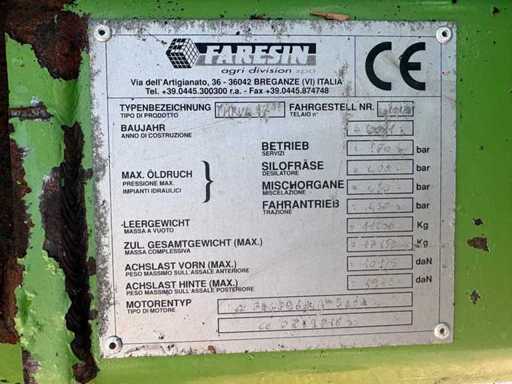 FARESIN
agri division spa
Via dell'Artigianato, 36 - 36042 BREGANZE (VI) ITALIA
Tel. +39.0445.300300 r.a. - Fax +39.0445.874748
CE
TYPENBEZEICHNUNG FAHRGESTELL NR.
TIPO DI PRODOTTO TELAIO n°
BAUJAHR
ANNO DI COSTRUZIONE
MAX. ÖLDRUCH
PRESSIONE MAX.
IMPIANTI IDRAULICI
BETRIEB bar
SERVIZI
SILOFRÄSE bar
DESILATORE
MISCHORGANE bar
MISCELAZIONE
FAHRANTRIEB bar
TRAZIONE
LEERGEWICHT Kg
MASSA A VUOTO
ZUL. GESAMTGEWICHT (MAX.) Kg
MASSA COMPLESSIVA
ACHSLAST VORN (MAX.) daN
PESO MASSIMO SULL'ASSALE ANTERIORE
ACHSLAST HINTE (MAX.) daN
PESO MASSIMO SULL'ASSALE POSTERIORE
MOTORENTYP
TIPO DI MOTORE